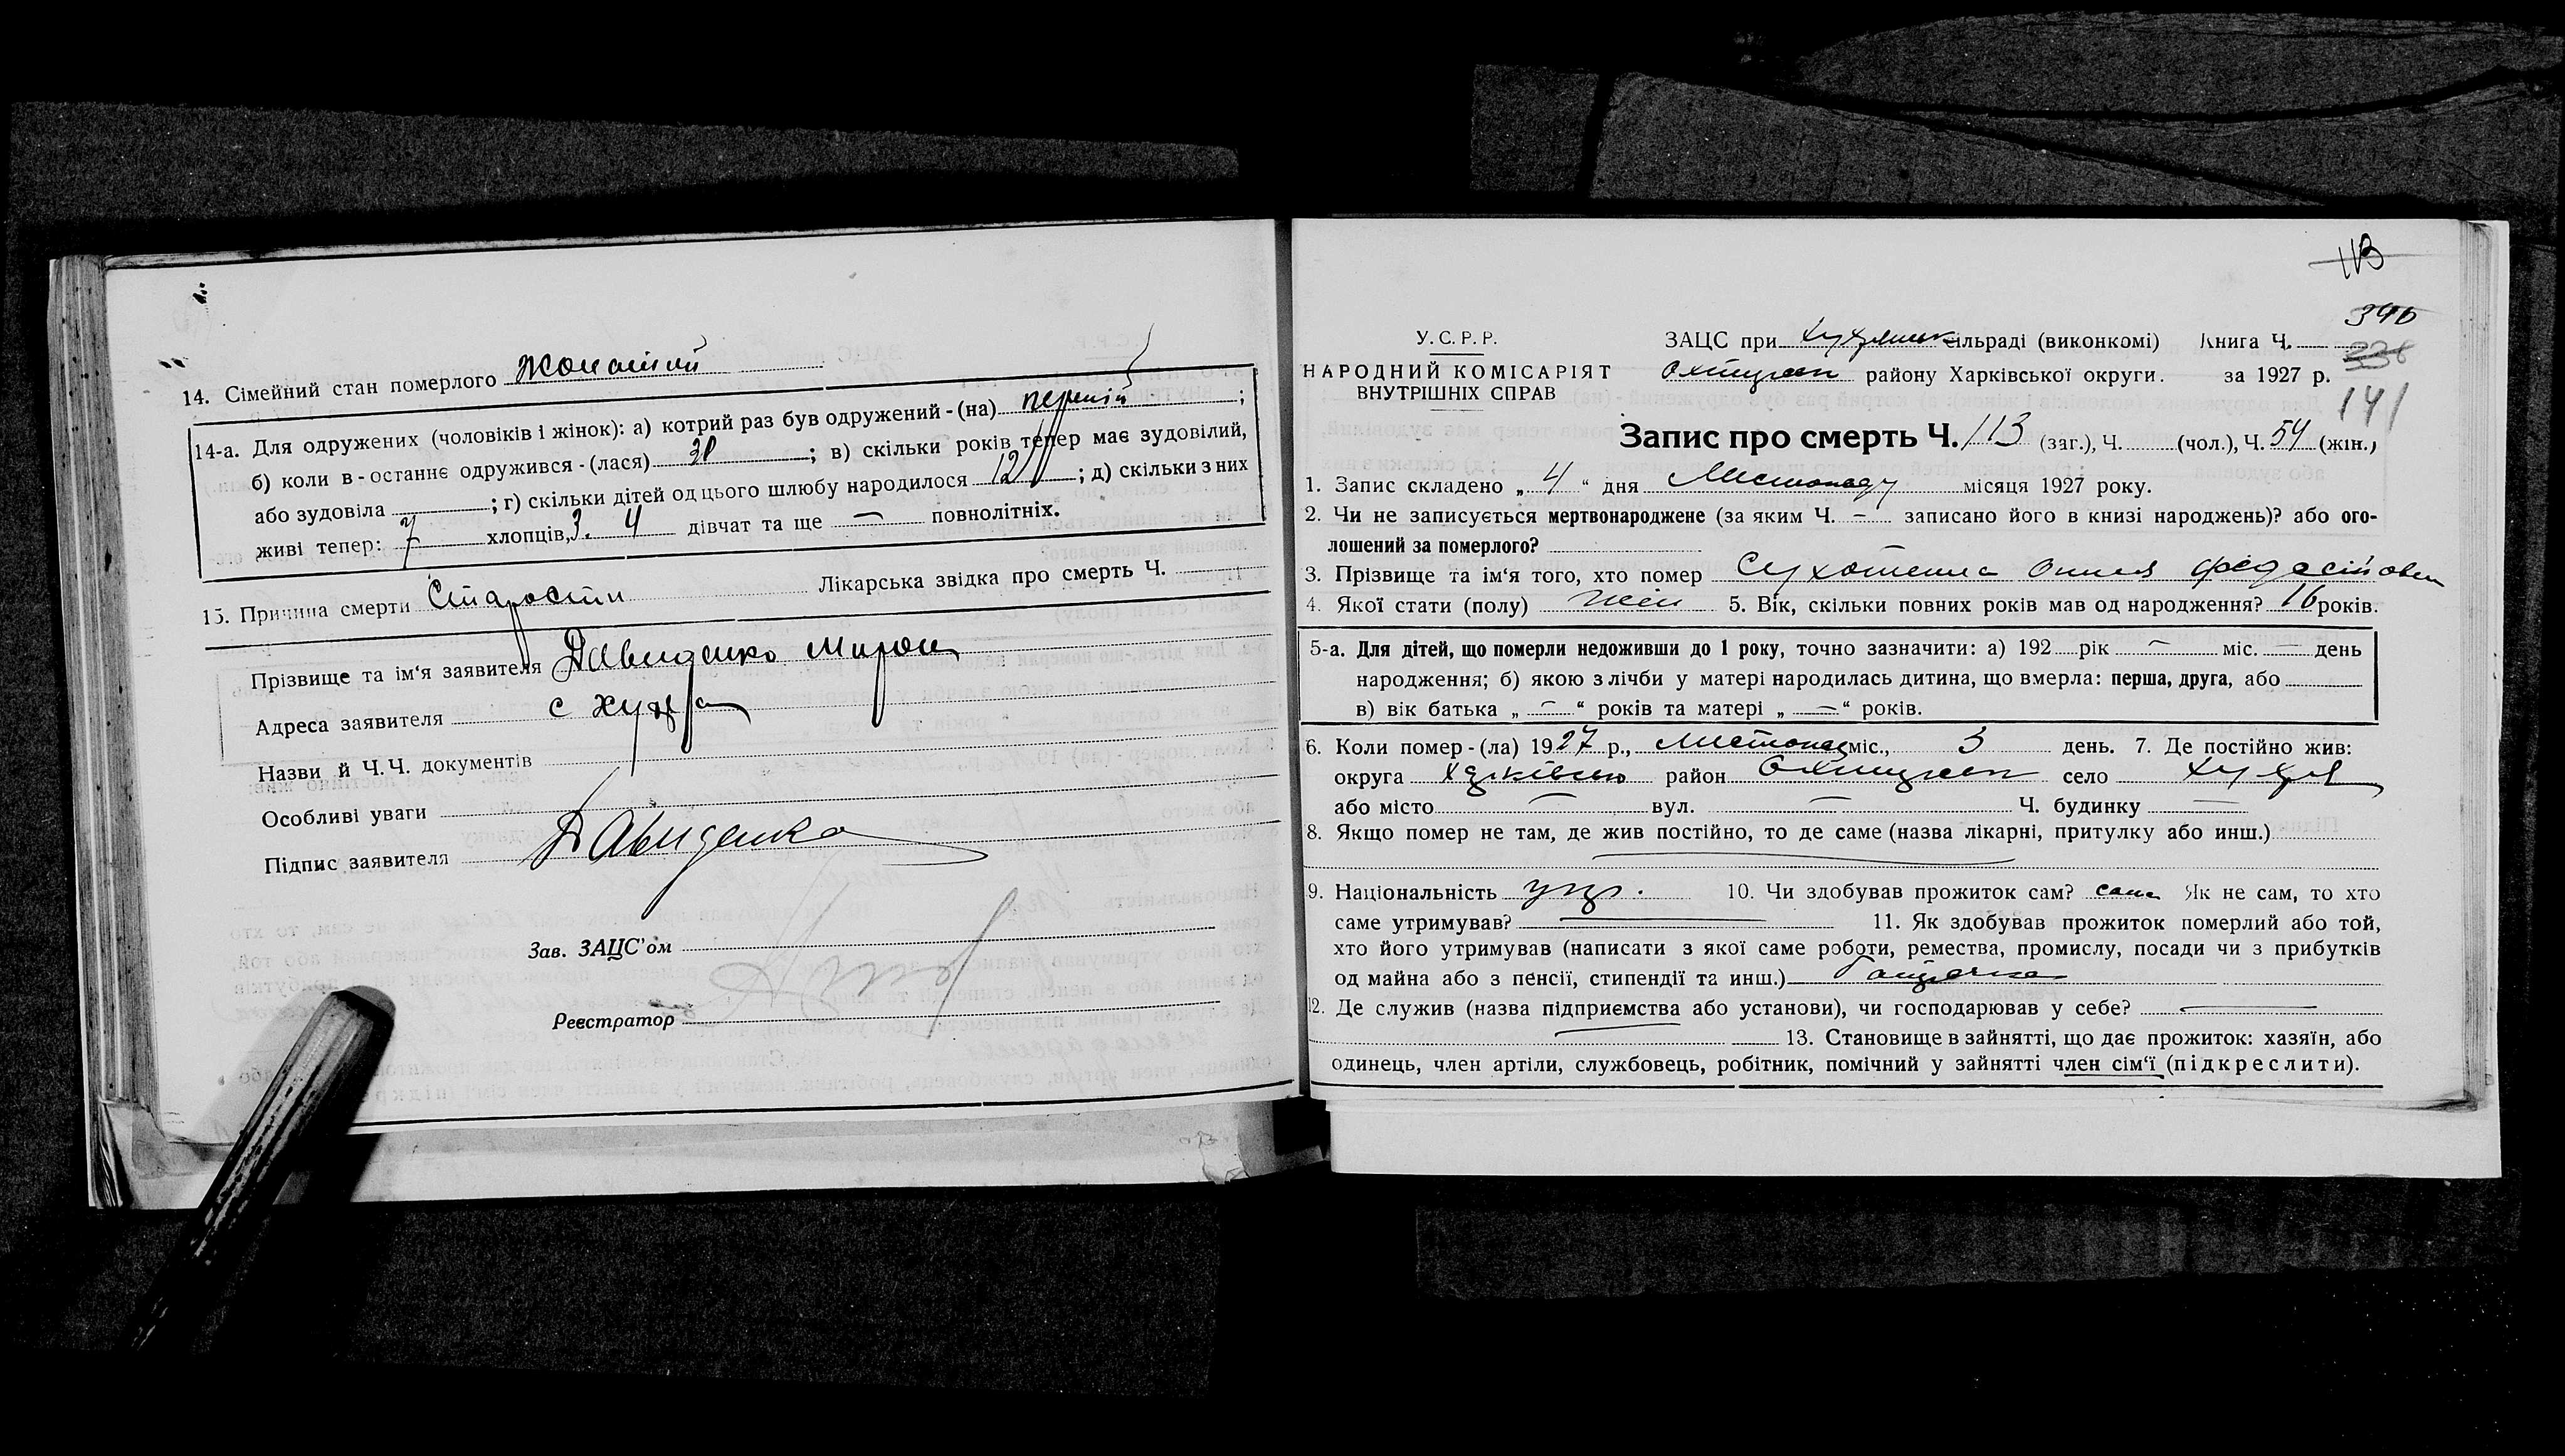 14. Сімейний стан померлого жонатий
14-а. Для одружених (чоловіків і жінок): а) котрий раз був одружений-(на) перший ;
б) коли в-останнє одружився-(лася) ; в) скільки років тепер має зудовілий,
або зудовіла ; г) скільки дітей од цього шлюбу народилося 12 ; д) скільки з них
живі тепер: 7 хлопців, 3. 4 дівчат та ще — повнолітніх.
15. Причина смерти Старости Лікарська звідка про смерть Ч.
Прізвище та ім'я заявителя Давиденко Мирон
Адреса заявителя с
Назви й Ч.Ч. документів
Особливі уваги
Підпис заявителя Давиденко
Зав. ЗАЦС'ом
Реєстратор
113
340
236
141
У.С.Р.Р.
НАРОДНИЙ КОМІСАРІЯТ
ВНУТРІШНІХ СПРАВ
ЗАЦС при сільраді (виконкомі) Книга Ч.
району Харківської округи. за 1927 р.
Запис про смерть Ч. 113 (заг.), Ч. (чол.), Ч. 54 (жін.)
1. Запис складено „ 4 “ дня Листопаду місяця 1927 року.
2. Чи не записується мертвонароджене (за яким Ч. – записано його в книзі народжень)? або ого-
лошений за померлого?
3. Прізвище та ім'я того, хто помер
4. Якої стати (полу) жін 5. Вік, скільки повних років мав од народження? років.
5-а. Для дітей, що померли недоживши до 1 року, точно зазначити: а) 192 рік — міс. — день
народження; б) якою з лічби у матері народилась дитина, що вмерла: перша, друга, або
в) вік батька „ — “ років та матері „ — “ років.
6. Коли помер-(ла) 1927 р., листопад міс., 3 день. 7. Де постійно жив:
округа Харківсько район село
або місто — вул. — Ч. будинку —
8. Якщо помер не там, де жив постійно, то де саме (назва лікарні, притулку або инш.)
9. Національність укр. 10. Чи здобував прожиток сам? сама Як не сам, то хто
саме утримував? 11. Як здобував прожиток померлий або той,
хто його утримував (написати з якої саме роботи, ремества, промислу, посади чи з прибутків
од майна або з пенсії, стипендії та инш.)
12. Де служив (назва підприємства або установи), чи господарював у себе? —
13. Становище в зайнятті, що дає прожиток: хазяїн, або
одинець, член артіли, службовець, робітник, помічний у зайнятті член сім'ї (підкреслити).